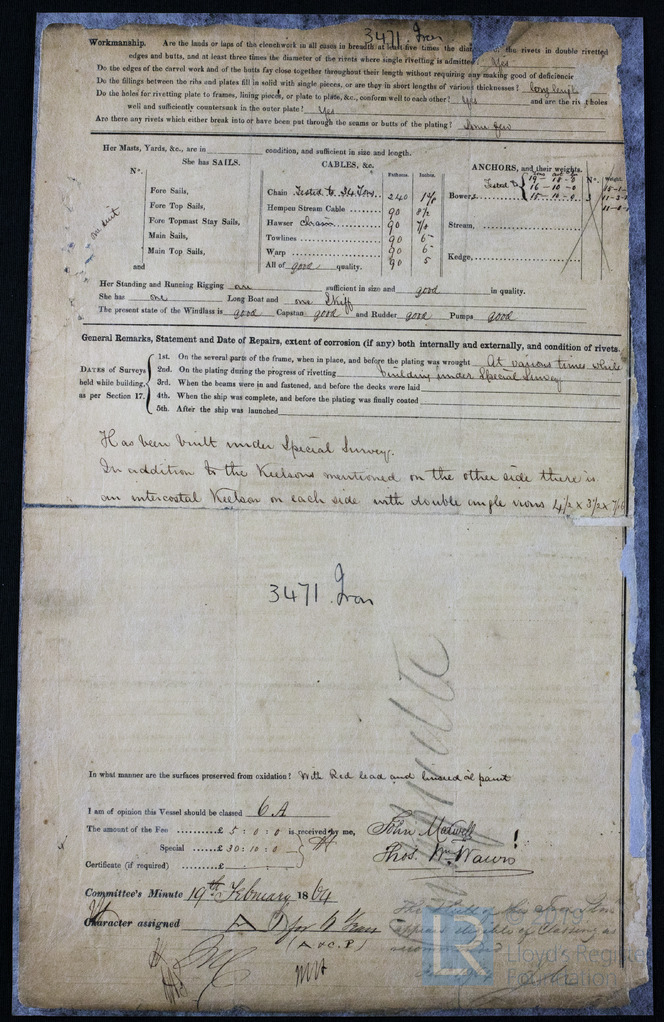 3471 Iron
Workmanship. Are the lands or laps of the clenchwork in all cases in breadth at least five times the the rivets in double rivetted
edges and butts, and at least three times the diameter of the rivets where single rivetting is admitted? Yes
Do the edges of the carvel work and of the butts fay close together throughout their length without requiring any making good of deficiencie
Do the fillings between the ribs and plates fill in solid with single pieces, or are they in short lengths of various thicknesses? long length
Do the holes for rivetting plate to frames, lining pieces, or plate to plate, &c., conform well to each other? Yes and are the rivet holes
well and sufficiently countersunk in the outer plate? Yes
Are there any rivets which either break into or have been put through the seams or butts of the plating? Some few
Her Masts, Yards, &c., are in condition, and sufficient in size and length.
She has SAILS. CABLES, &c. ANCHORS, and their weights.
N°. Fathoms. Inches. N°. Weight.
Fore Sails, Chain Tested to 34 Tons 240 Bowers, Tested to 3
Fore Top Sails, Hempen Stream Cable 90 8½
Fore Topmast Stay Sails, Hawser Chain 90 7/8 Stream,
Main Sails, Towlines 90 6
Main Top Sails, Warp 90 6 Kedge,
and All of good quality. 90 5
Her Standing and Running Rigging are sufficient in size and good in quality.
She has one Long Boat and one Skiff
The present state of the Windlass is good Capstan good and Rudder good Pumps good
General Remarks, Statement and Date of Repairs, extent of corrosion (if any) both internally and externally, and condition of rivets.
DATES of Surveys held while building, as per Section 17.
1st. On the several parts of the frame, when in place, and before the plating was wrought At various times while
2nd. On the plating during the progress of rivetting building under Special Survey
3rd. When the beams were in and fastened, and before the decks were laid
4th. When the ship was complete, and before the plating was finally coated
5th. After the ship was launched
Has been built under Special Survey.
In addition to the Keelsons mentioned on the other side there is
an intercostal Keelson on each side with double angle irons 4½ x 3½ x 7/16
3471 Iron
In what manner are the surfaces preserved from oxidation? With Red lead and linseed oil paint
I am of opinion this Vessel should be classed 6 A
The amount of the Fee .........£ 5 : 0 : 0 is received by me,
Special ......£ 30 : 10 : 0
Certificate (if required) ......£
John Maxwell
Thos.
Committee's Minute 19th February 1864
Character assigned A for 6 Years
(A & C.P)
LR
Lloyd's Register
Foundation